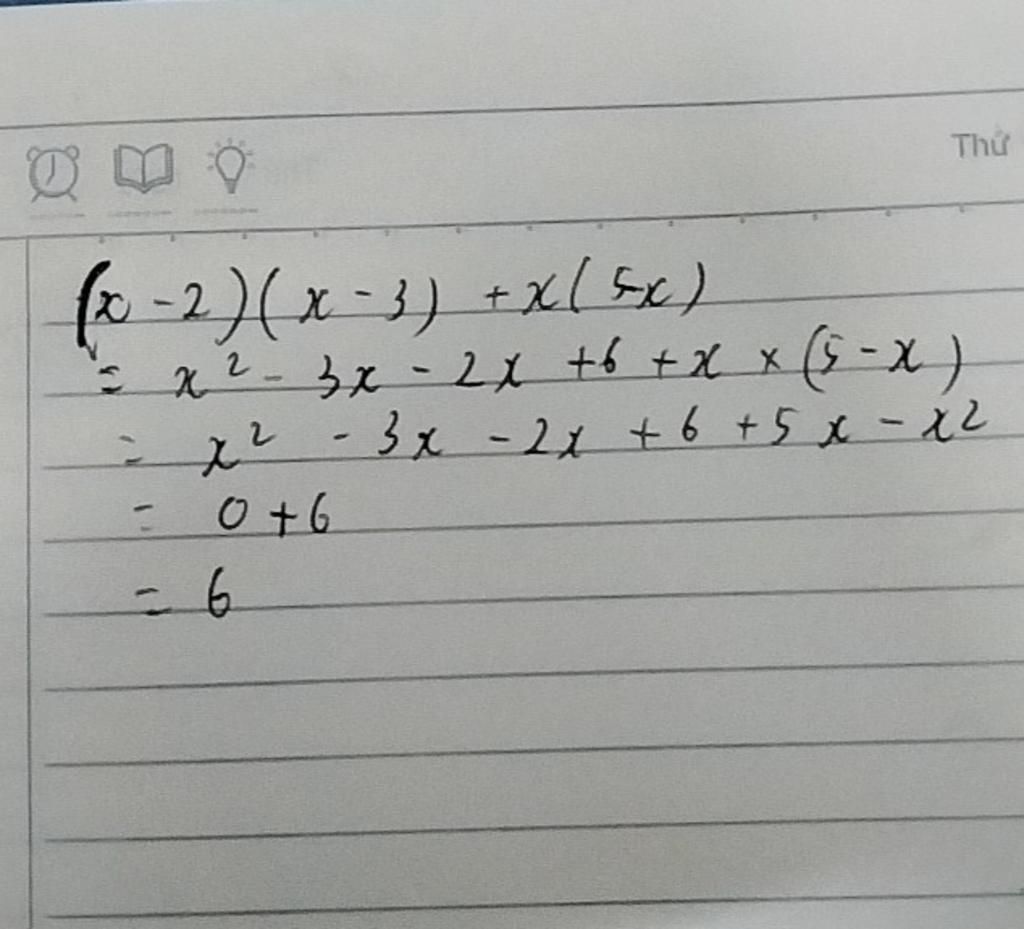 Thứ
(x - 2)(x - 3) + x(5-x)
= x² - 3x - 2x + 6 + x × (5 - x)
= x² - 3x - 2x + 6 + 5x - x2
= 0 + 6
= 6